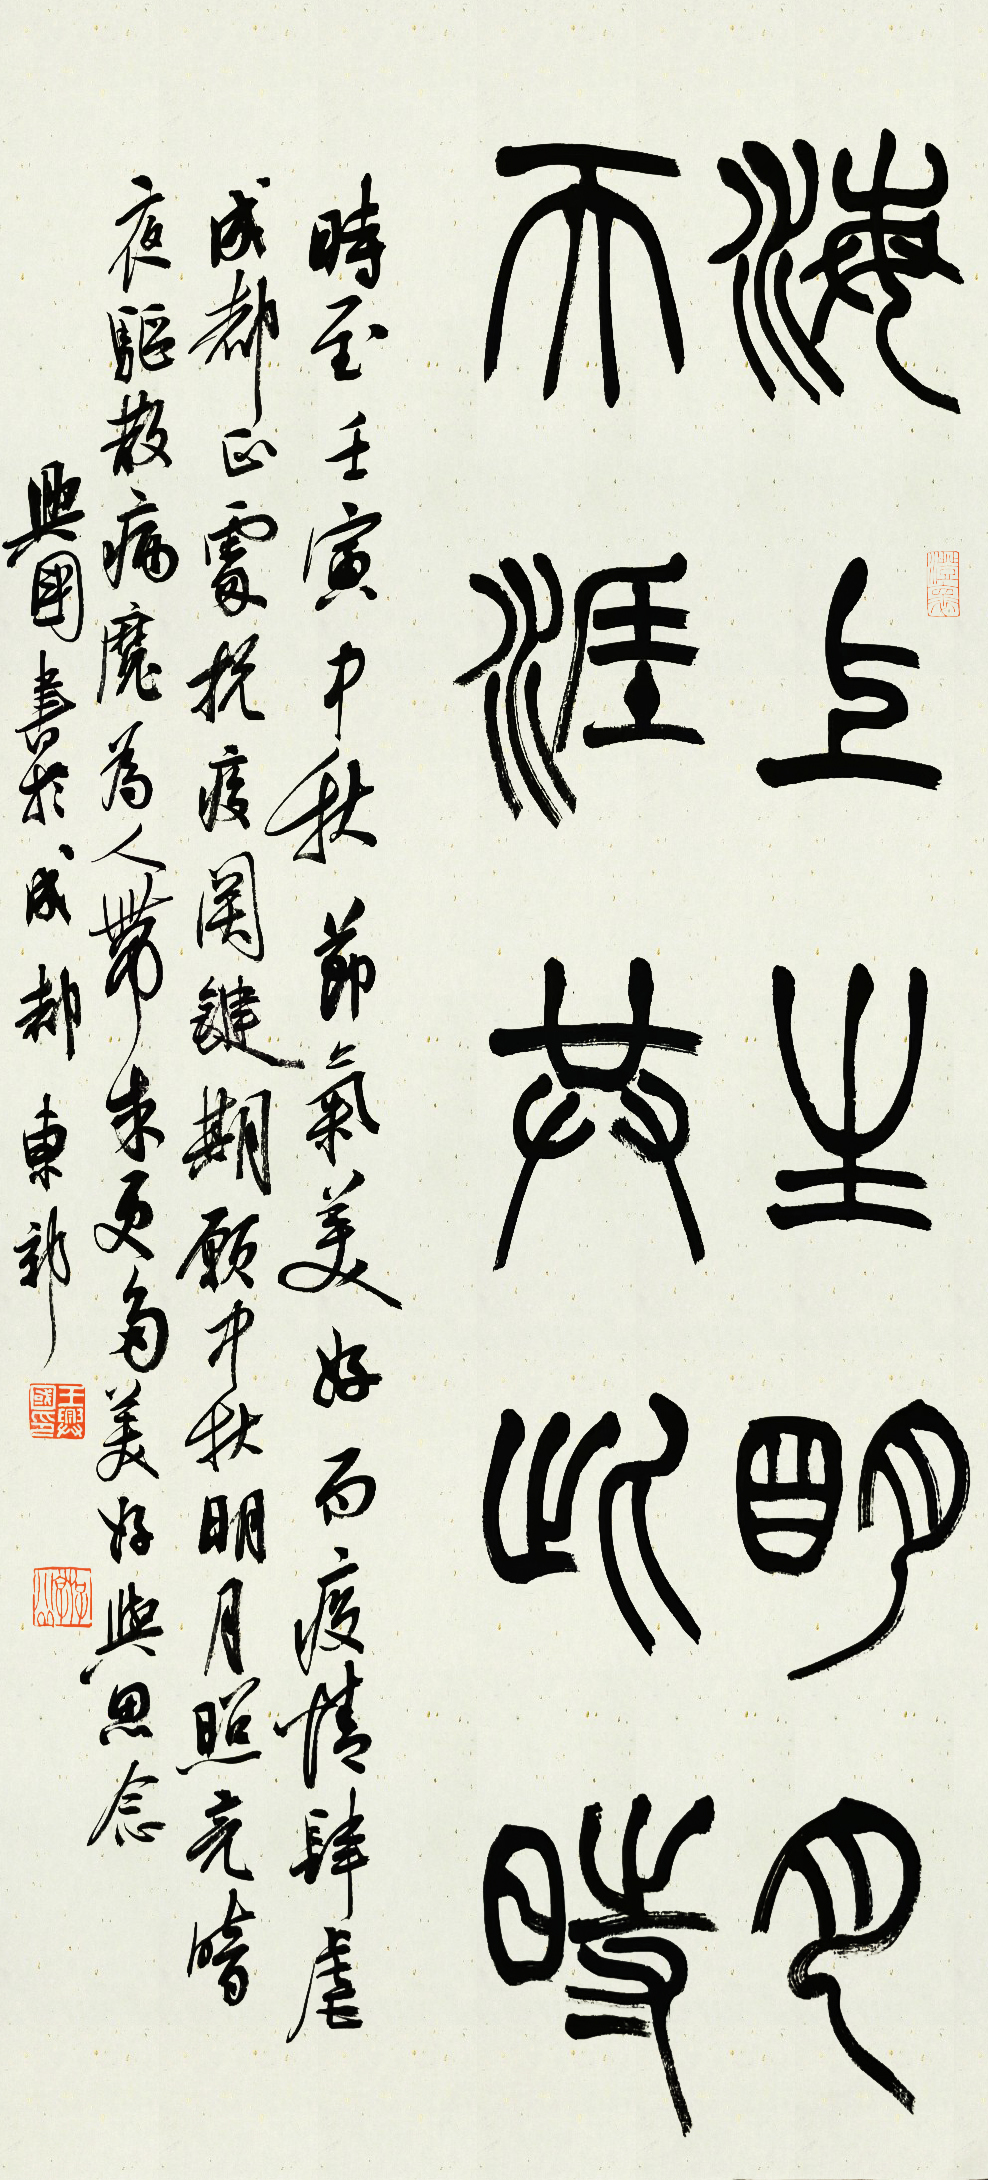 海上生明月
天涯共此時
時至壬寅中秋節氣美好而疫情肆虐
成都正處抗疫關鍵期願中秋明月照亮暗
夜驅散病魔為人帶來更多美好與思念
興國書於成都東郊
王興國印